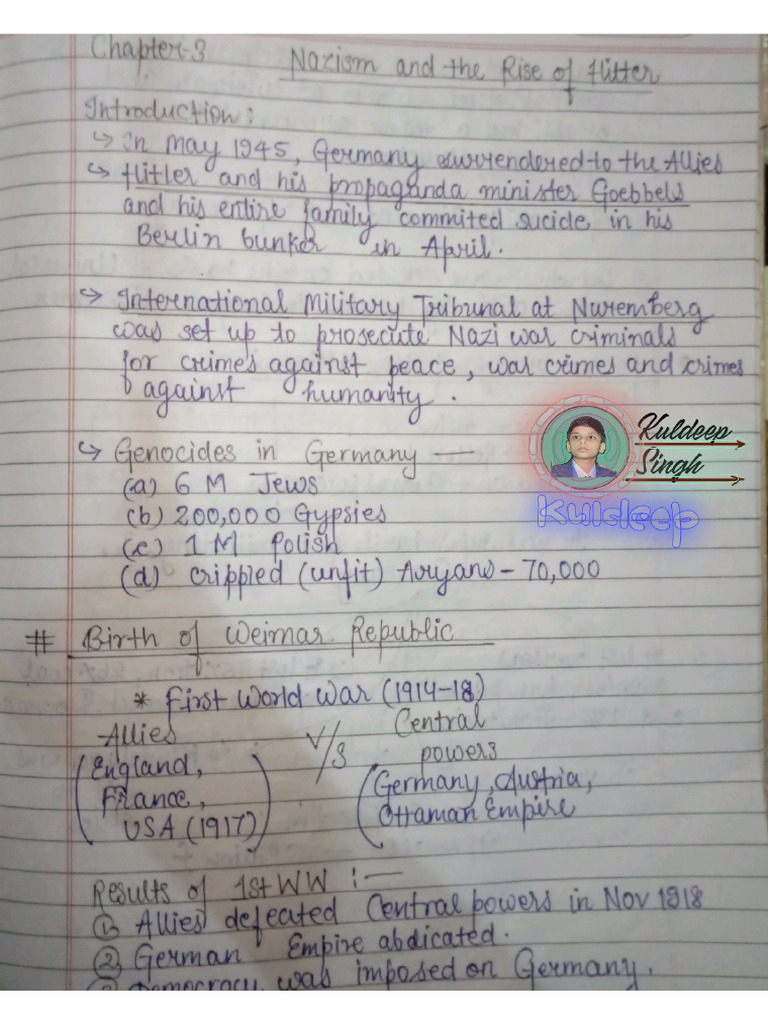 Chapter-3 Nazism and the Rise of Hitler
Introduction:
↳ In May 1945, Germany surrendered to the Allies
↳ Hitler and his propaganda minister Goebbels
and his entire family commited sucide in his
Berlin bunker in April.
↳ International Military Tribunal at Nuremberg
was set up to prosecute Nazi war criminals
for crimes against peace, war crimes and crimes
against humanity.
Kuldeep
Singh
Kuldeep
↳ Genocides in Germany —
(a) 6 M Jews
(b) 200,000 Gypsies
(c) 1 M Polish
(d) crippled (unfit) Aryans - 70,000
# Birth of Weimar Republic
* First World War (1914-18)
Allies V/S Central
powers
(England,
France,
USA (1917))
(Germany, Austria,
Ottaman Empire
Results of 1st WW :—
① Allies defeated Central powers in Nov 1918
② German Empire abdicated.
③ Democracy was imposed on Germany.